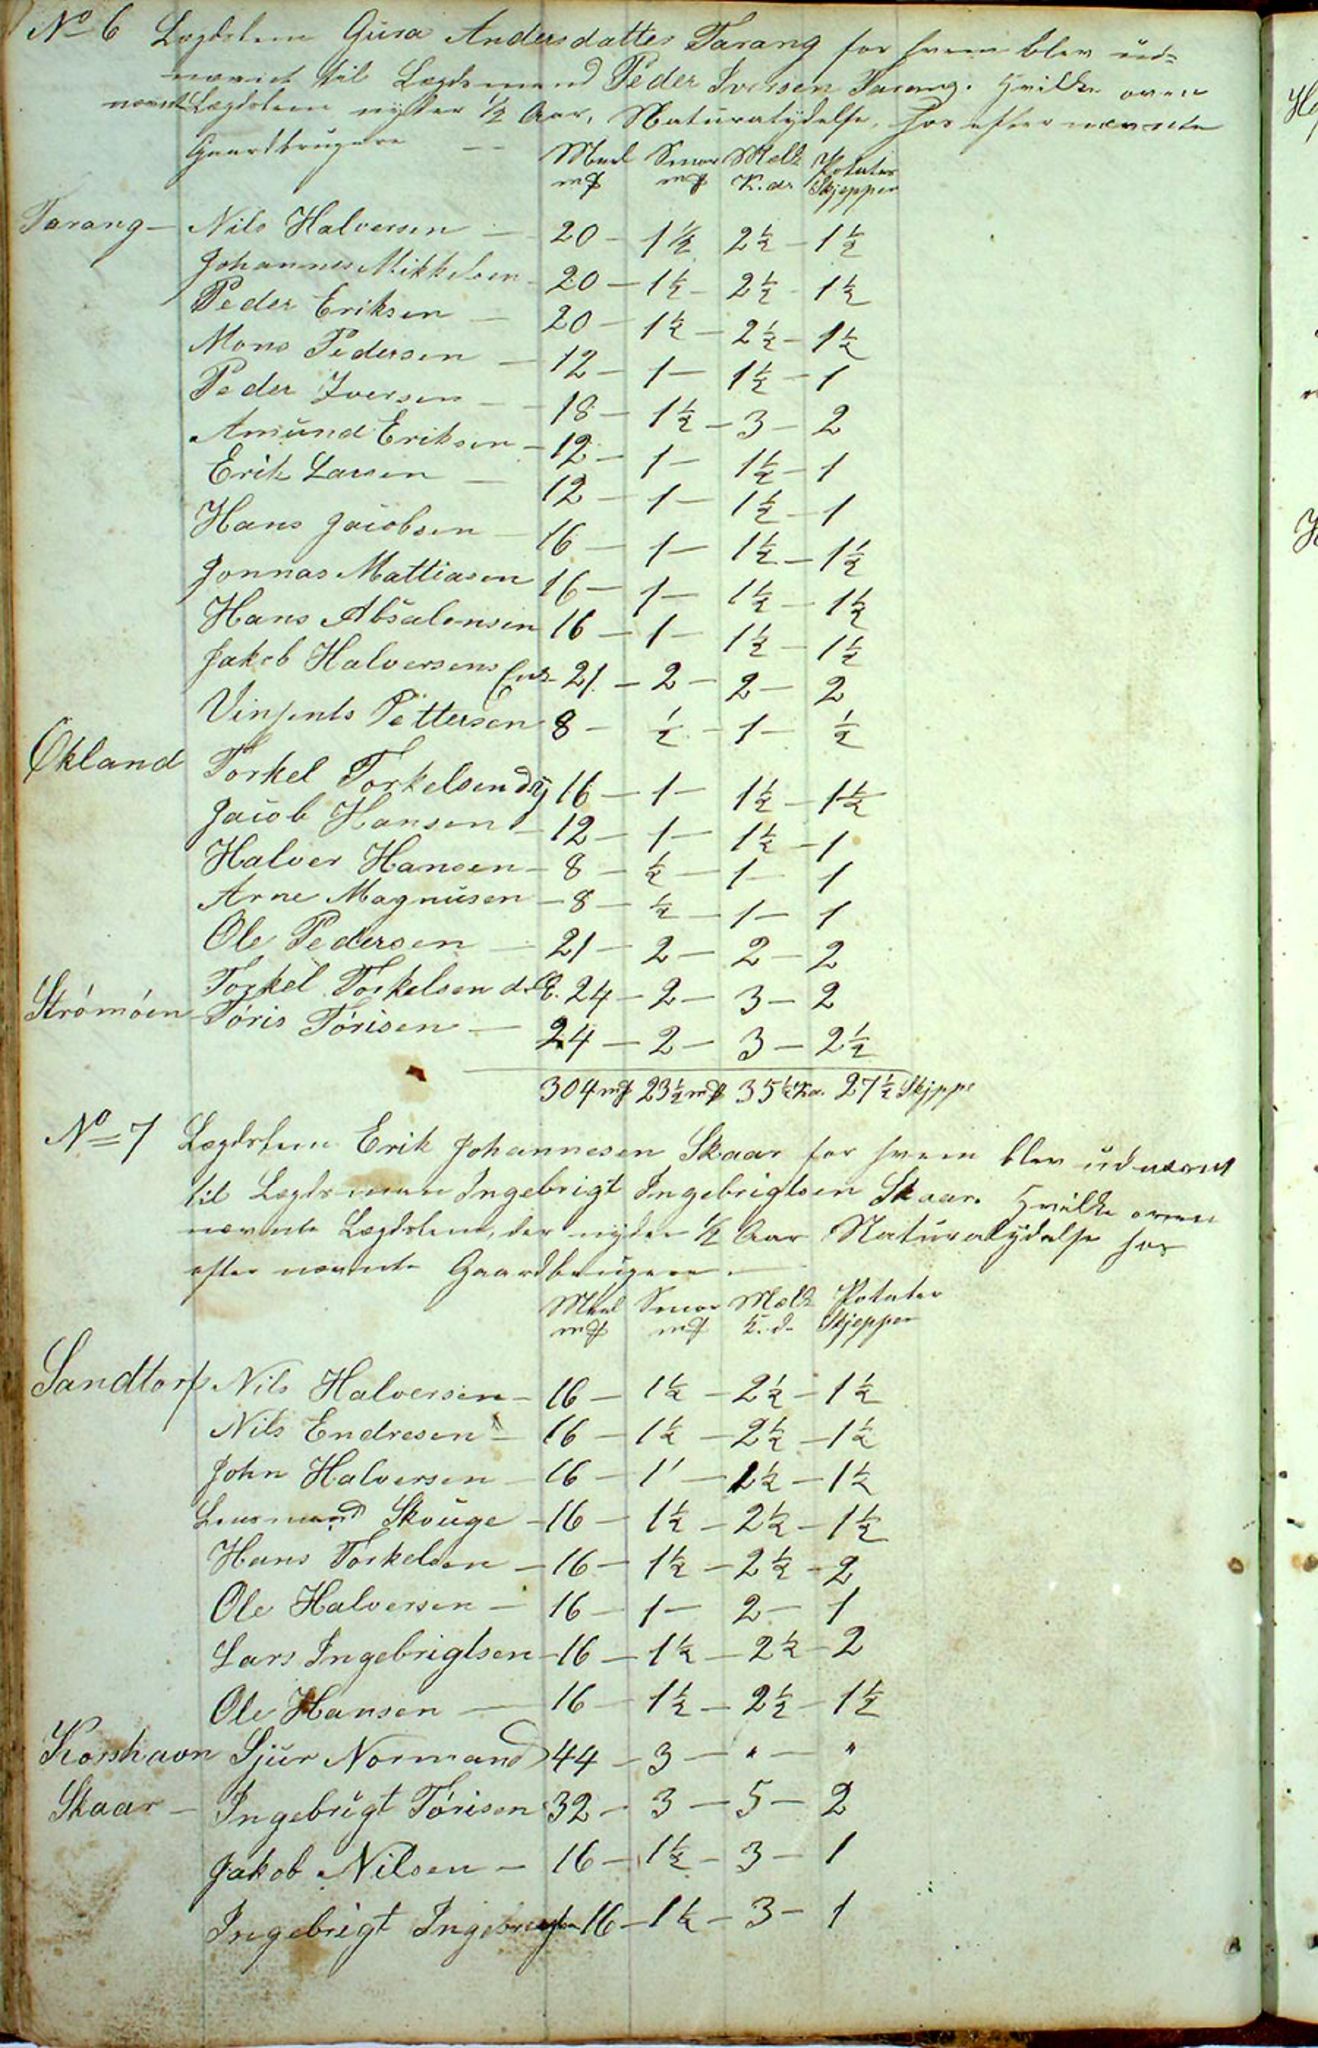 No 6 Lægdslem Gura Andersdatter Tarang for hvem blev ud-
nævnt til Lægdsmand Peder Iversen Tarang. Hvilke oven
nævnt Lægdslem nyder 1/2 Aar, Naturalydelse, hos efter nævnte
Gaardbrugere —
Meel Smør Melk Potater
m℔ m℔ K. dr Skjepper
Tarang — Nils Halversen — 20 — 1 1/2 2 1/2 — 1 1/2
Johannes Mikkelsen 20 — 1 1/2 — 2 1/2 — 1 1/2
Peder Eriksen — 20 — 1 1/2 — 2 1/2 — 1 1/2
Mons Pedersen — 12 — 1 — 1 1/2 — 1
Peder Iversen — 18 — 1 1/2 — 3 — 2
Amund Eriksen — 12 — 1 — 1 1/2 — 1
Erik Larsen — 12 — 1 — 1 1/2 — 1
Hans Jacobsen — 16 — 1 — 1 1/2 — 1 1/2
Jonnas Mattiasen 16 — 1 — 1 1/2 — 1 1/2
Hans Absalonsen 16 — 1 — 1 1/2 — 1 1/2
Jakob Halversens Enk. 21. — 2 — 2 — 2
Vinsents Pettersen 8 — 1/2 — 1 — 1/2
Økland Torkel Torkelsen dy 16 — 1 — 1 1/2 — 1 1/2
Jacob Hansen — 12 — 1 — 1 1/2 — 1
Halver Hansen — 8 — 1/2 — 1 — 1
Arne Magnusen — 8 — 1/2 — 1 — 1
Ole Pedersen — 21 — 2 — 2 — 2
Torkel Torkelsen d. E. 24 — 2 — 3 — 2
Strømøen — Tøris Tørisen — 24 — 2 — 3 — 2 1/2
304 m℔ 23 1/2 m℔ 35 1/2 Ka. 27 1/2 Skjppe
No = 7 Lægdslem Erik Johannesen Skaar for hvem blev udnævnt
til Lægdsman Ingebrigt Ingebrigtsen Skaar. Hvilke oven
nævnte Lægdslem, der nyder 1/2 Aar Naturalydelse hos
efter nævnte Gaardbrugere —
Meel Smør Melk Potater
m℔ m℔ K. d. Skjepper
Sandtorf Nils Halversen — 16 — 1 1/2 — 2 1/2 — 1 1/2
Nils Endresen — 16 — 1 1/2 — 2 1/2 — 1 1/2
John Halversen — 16 — 1 — 2 1/2 — 1 1/2
Lensmand Skouge — 16 — 1 1/2 — 2 1/2 — 1 1/2
Hans Torkelsen — 16 — 1 1/2 — 2 1/2 — 2
Ole Halversen — 16 — 1 — 2 — 1
Lars Ingebrigtsen — 16 — 1 1/2 — 2 1/2 — 2
Ole Hansen — 16 — 1 1/2 — 2 1/2 — 1 1/2
Korshavn Sjur Normand 44 — 3 — " — "
Skaar — Ingebrigt Tørisen 32 — 3 — 5 — 2
Jakob Nilsen — 16 — 1 1/2 — 3 — 1
Ingebrigt Ingebrigtsen 16 — 1 1/2 — 3 — 1